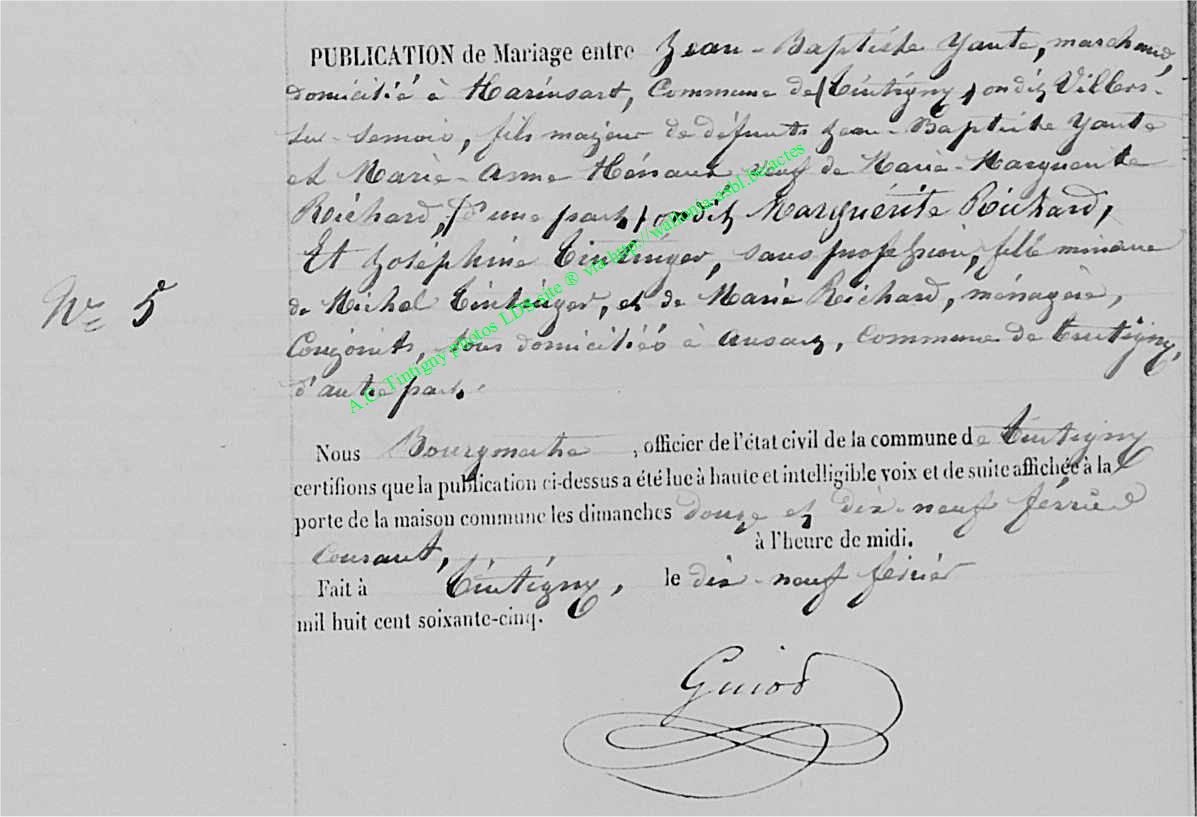 PUBLICATION de Mariage entre Jean-Baptiste Yante, marchand,
domicilié à Harinsart, Commune de (Tintigny) ondit Villers-
sur-Semois, fils majeur de défunts Jean-Baptiste Yante
et Marie-Anne Hénaux veuf de Marie-Marguerite
Richard, (d'une part,) ondit Marguérite Richard,
Et Joséphine Tintinger, sans profession, fille mineure
N° 5
de Michel Tintinger, et de Marie Richard, ménagère,
Conjoints, tous domiciliés à Ansart, Commune de Tintigny,
d'autre part.
A.C. Tintigny photos LDG site ® via http://wallonia-asbl.be/actes
Nous Bourgmestre, officier de l'état civil de la commune de Tintigny
certifions que la publication ci-dessus a été lue à haute et intelligible voix et de suite affichée à la
porte de la maison commune les dimanches douze et dix-neuf février
Courant, à l'heure de midi.
Fait à Tintigny, le dix-neuf février
mil huit cent soixante-cinq.
Guiot